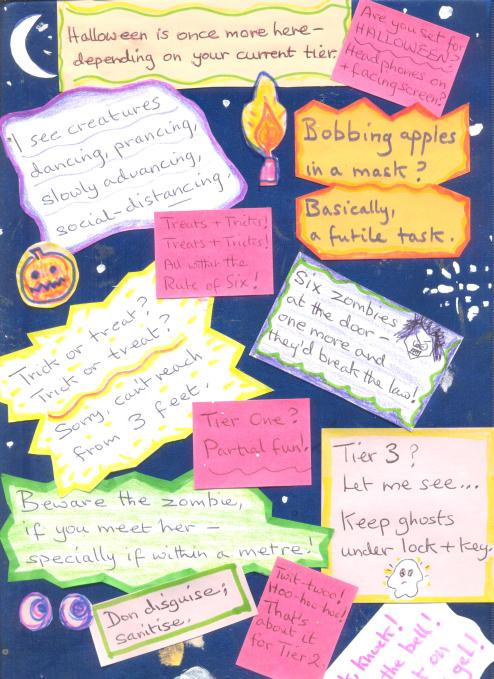 Halloween is once more here-
depending on your current tier.
Are you set for
HALLOWEEN?
Headphones on
+ facing screen?
I see creatures
dancing, prancing,
slowly advancing,
social-distancing.
Bobbing apples
in a mask?
Basically,
a futile task.
Treats + Tricks!
Treats + Tricks!
All within the
Rule of Six!
Six zombies
at the door -
one more and
they'd break the law!
Trick or treat?
Trick or treat?
Sorry, can't reach
from 3 feet.
Tier One?
Partial fun!
Tier 3?
Let me see...
Keep ghosts
under lock + key.
Beware the zombie,
if you meet her -
specially if within a metre!
Don disguise;
sanitise.
Twit-twoo!
Hoo-hoo-hoo!
That's
about it
for Tier 2.
knock!
the bell!
on
gel!